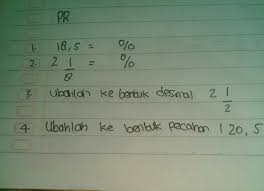 PR
1. 18,5 = %
2. 2 1/8 = %
3. Ubahlah ke bentuk desimal 2 1/2
4. Ubahlah ke bentuk pecahan 120,5